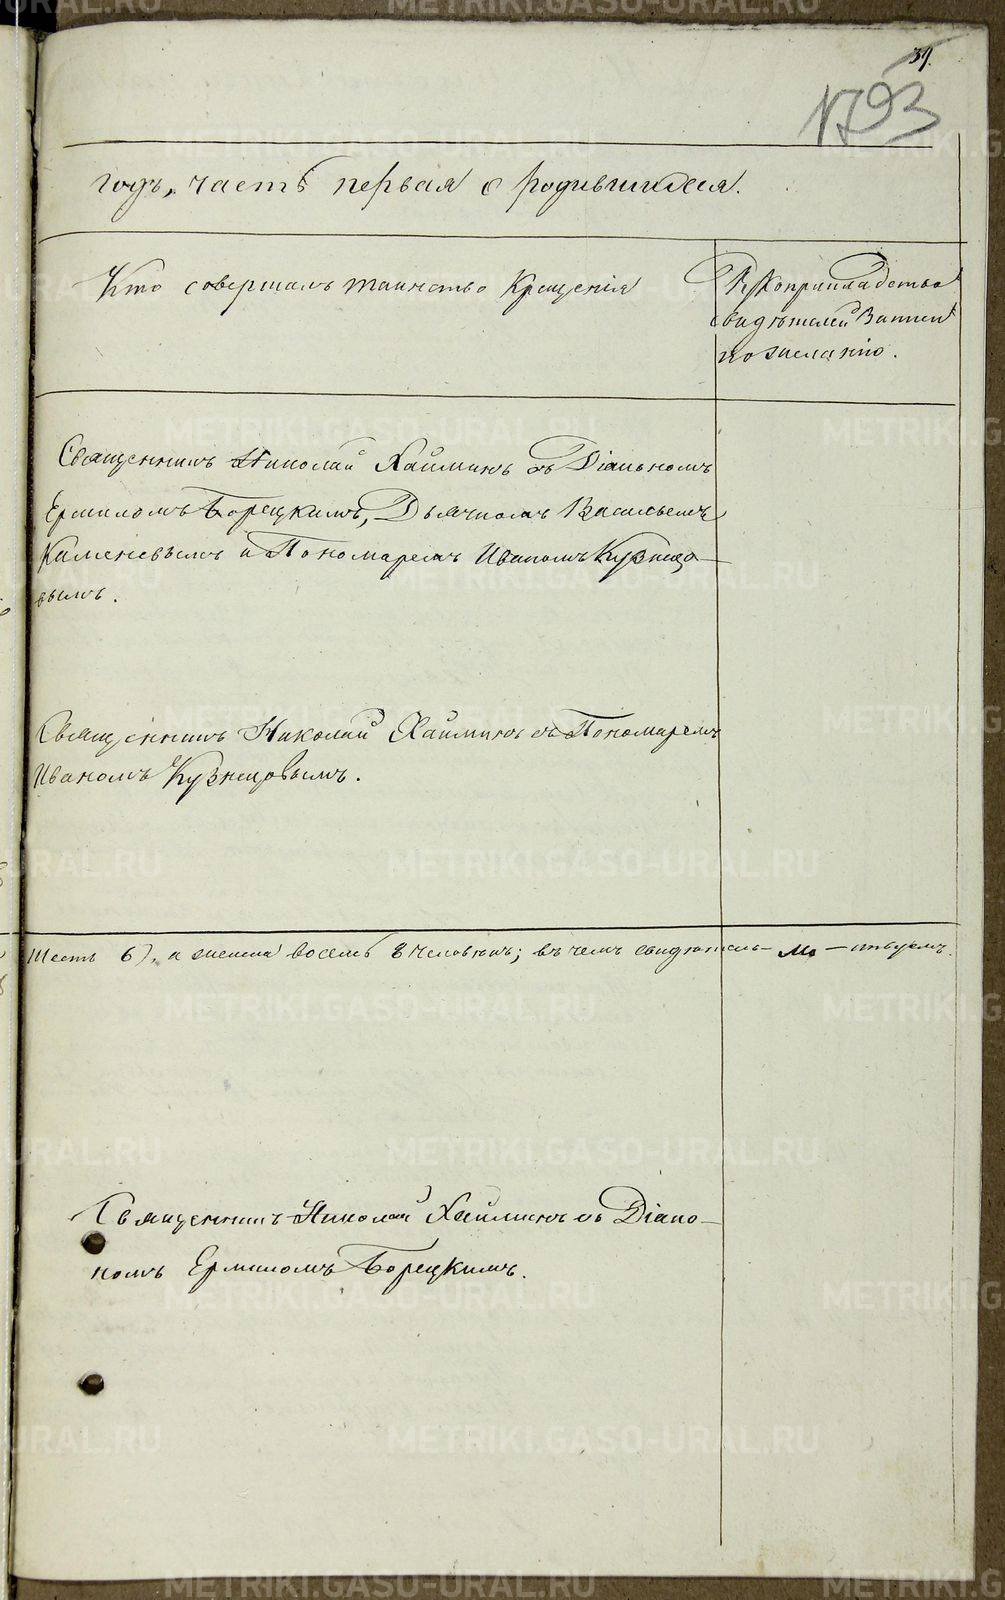 39.
1793
годъ, часть первая о родившихся.
Кто совершалъ таинство Крещенія
Рукоприкладство
свидѣтелей записи
по желанію.
Священникъ Николай Хаймикъ съ Діакономъ
Ермиломъ Борецкимъ, Дьячкомъ Васильемъ
Каменевымъ и Пономаремъ Иваномъ Кузнецо-
вымъ.
Священникъ Николай Хаймикъ съ Пономаремъ
Иваномъ Кузнецовымъ.
шесть 6), а женска восемь 8 человѣкъ; въ чемъ свидѣтель- мо - ствуемъ.
Священникъ Николай Хаймикъ съ Діако-
номъ Ермиломъ Борецкимъ.
METRIKI.GASO-URAL.RU